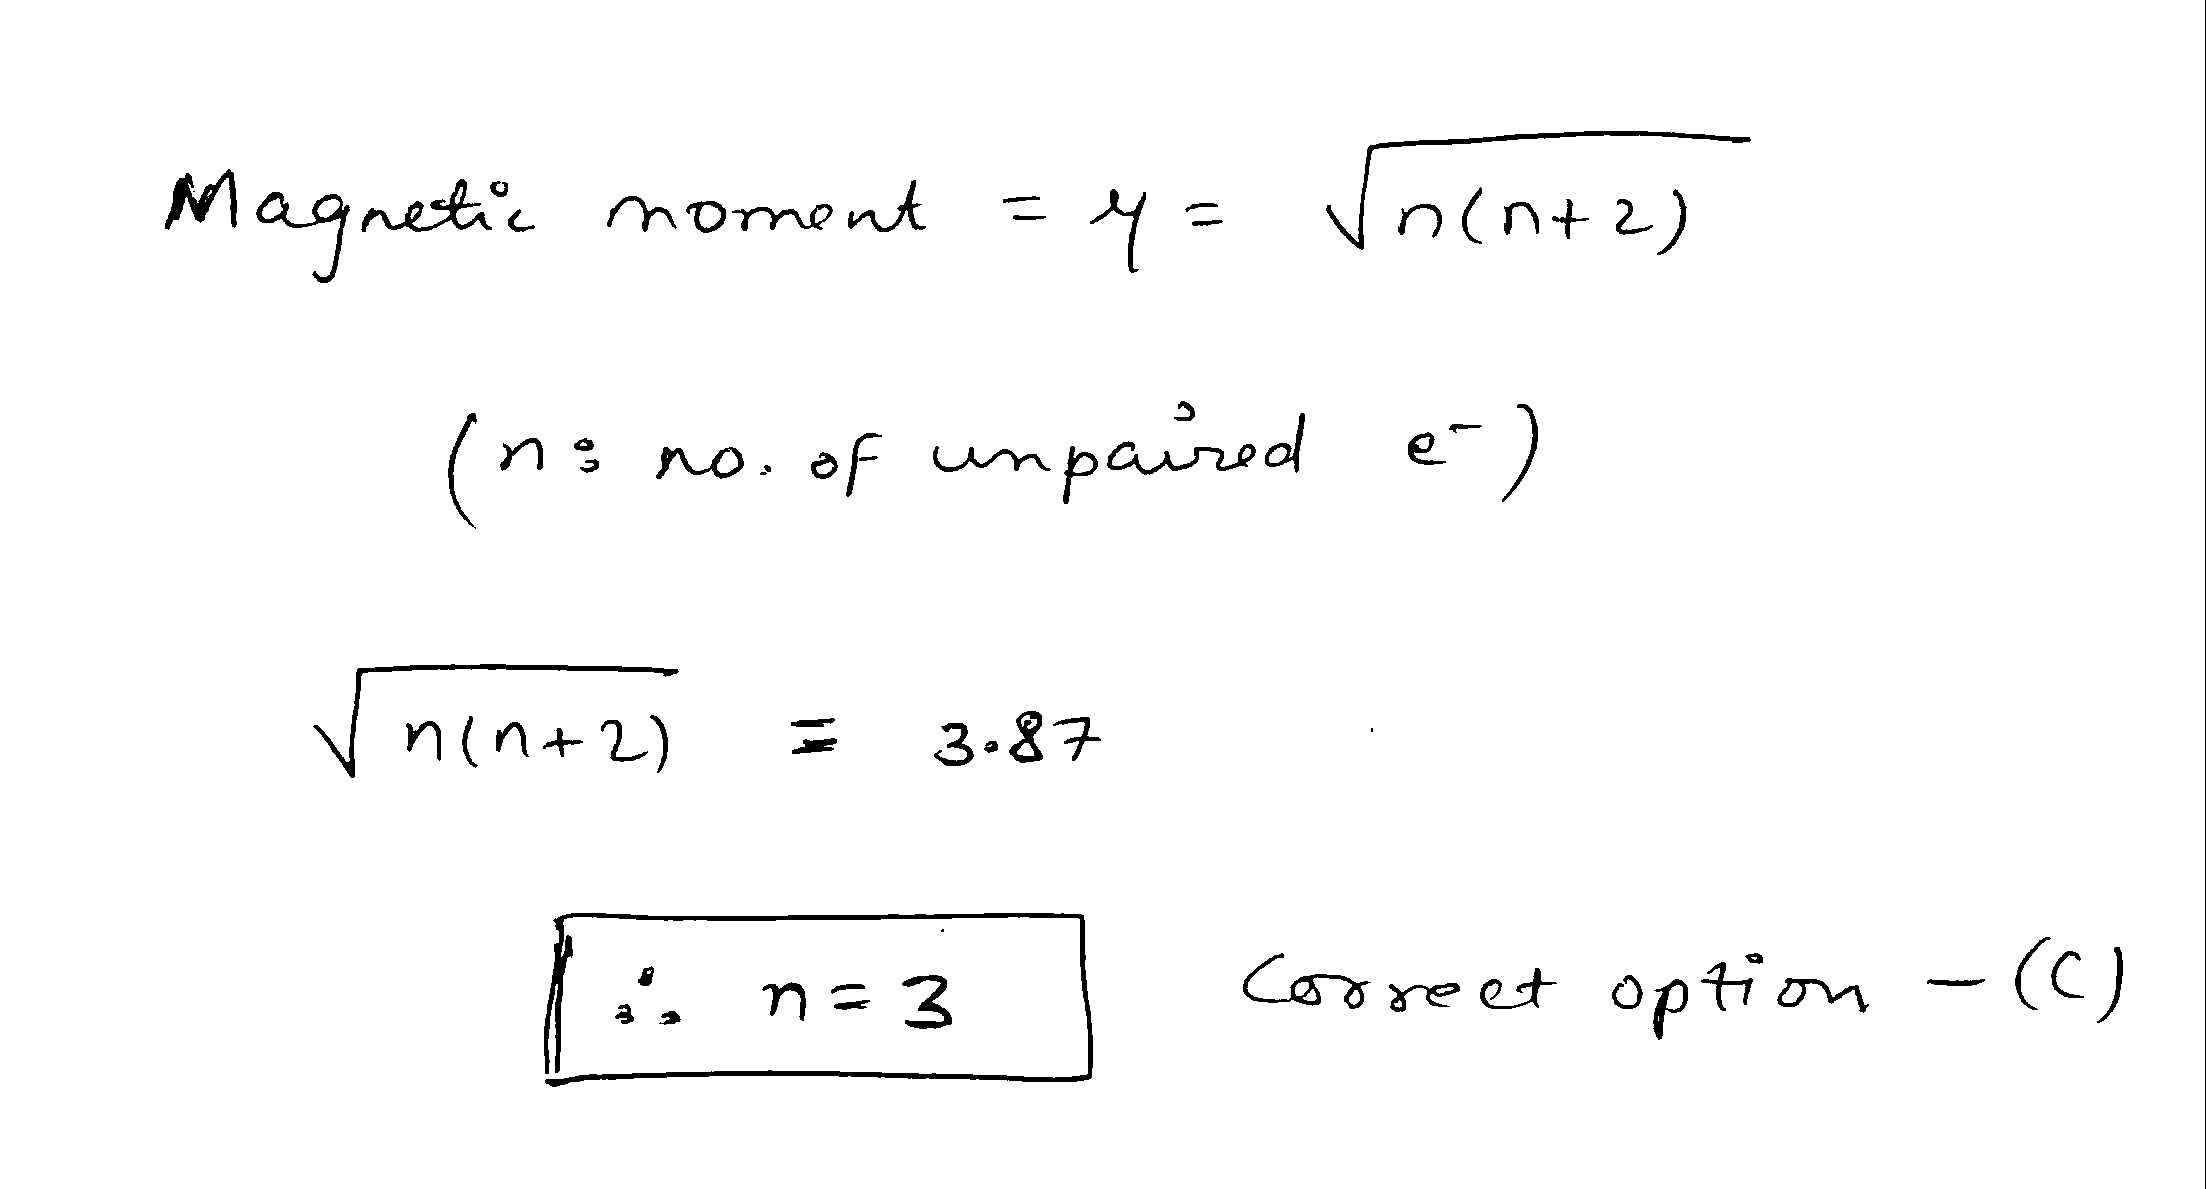 Magnetic moment = μ = √n(n+2)
(n: no. of unpaired e⁻)
√n(n+2) = 3.87
∴ n = 3 Correct option - (C)